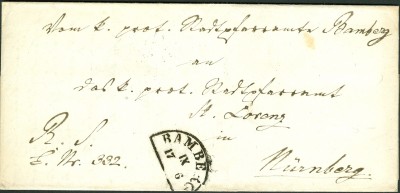 Vom k. prot. Stadtpfarramte Bamberg
an
das k. prot. Stadtpfarramt
St. Lorenz
in
Nürnberg.
R. S.
E. Nr. 332.
BAMBE
IX
17 6